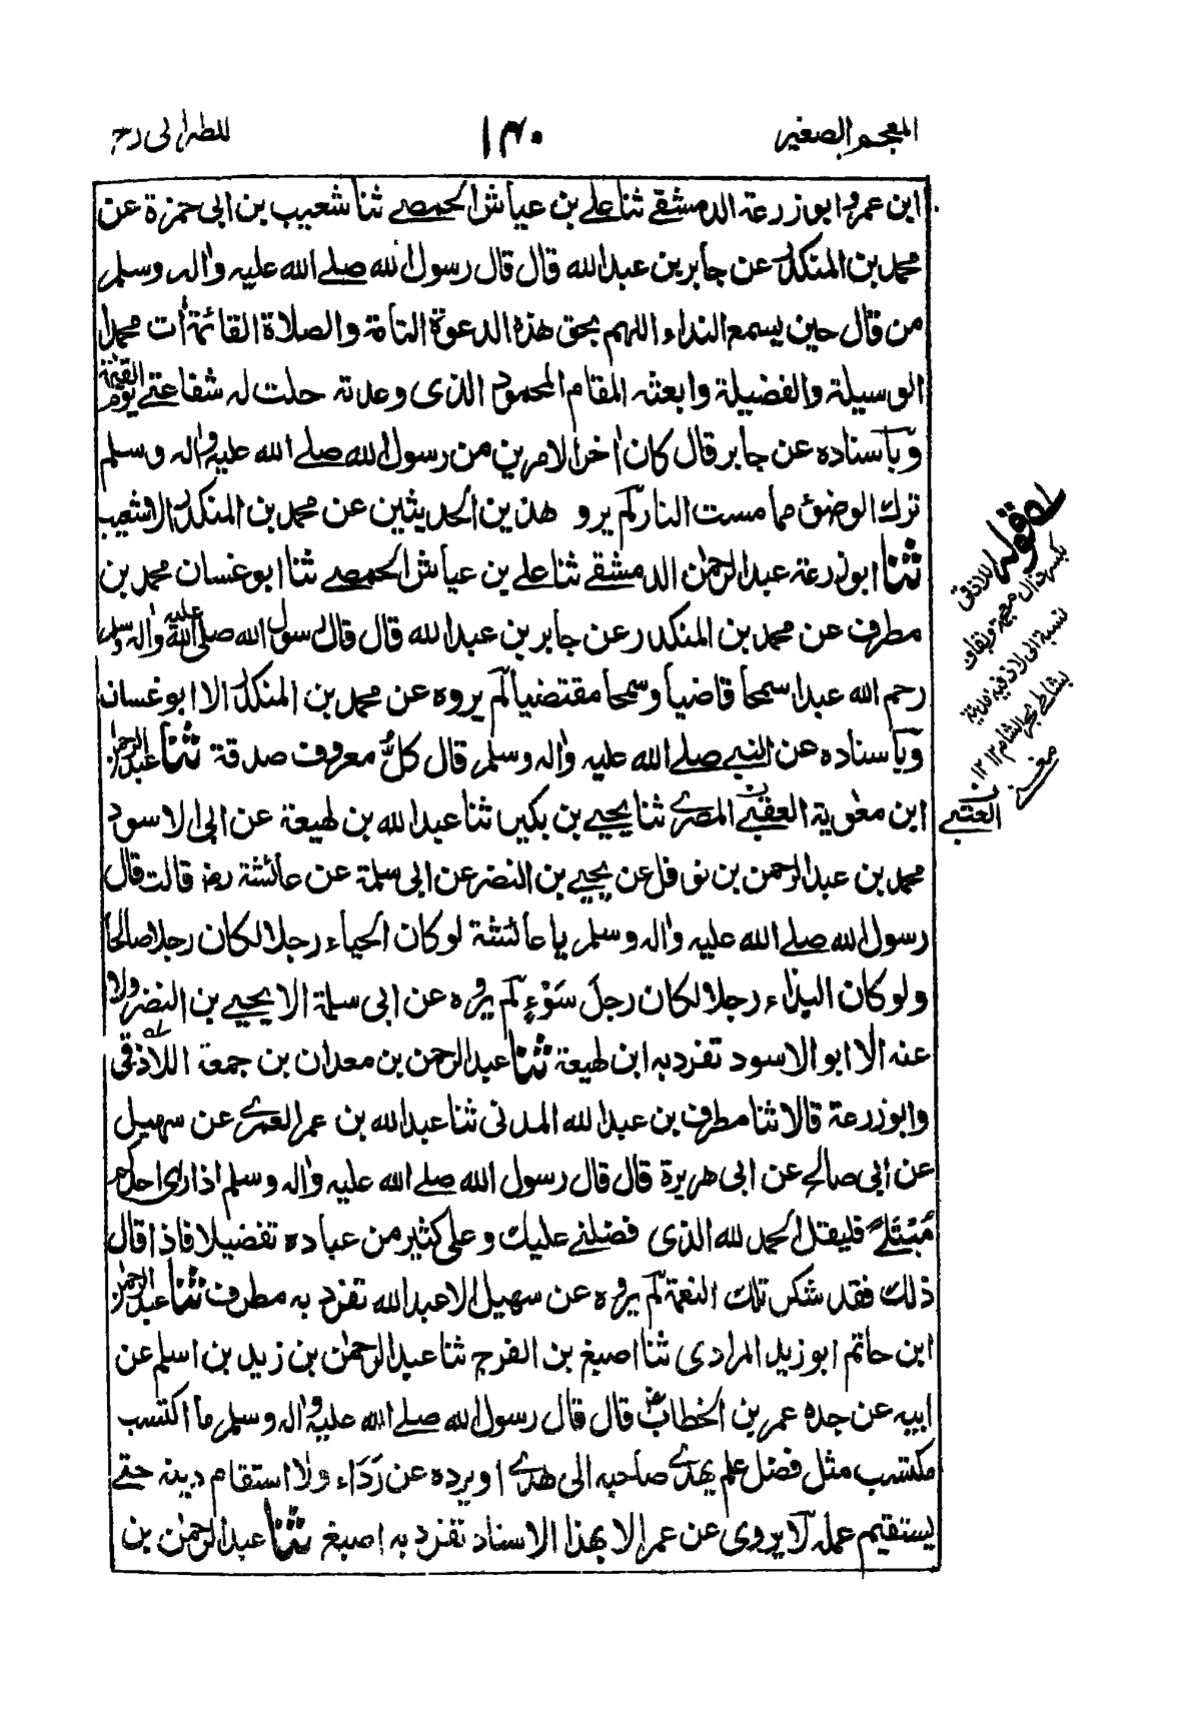 المعجم الصغير
١٤٠
للطبرانى رح
ابن عمرو ابو زرعة الدمشقے ثنا علے بن عياش الحمصے ثنا شعيب بن ابى حمزة عن
محمد بن المنكدر عن جابر بن عبدالله قال قال رسول الله صلے الله عليه واٰله وسلم
من قال حين يسمع النداء اللهم بحق هذه الدعوة التامة والصلاة القائمة اٰت محمدا
الوسيلة والفضيلة وابعثه المقام المحمود الذى وعدته حلت له شفاعتے يوم القيٰمة
وباسناده عن جابر قال كان اٰخر الامرين من رسول الله صلے الله عليه واٰله وسلم
ترك الوضوء مما مست النار لم يرو هذين الحديثين عن محمد بن المنكدر الا شعيب
ثنا ابو زرعة عبد الرحمٰن الدمشقے ثنا علے بن عياش الحمصے ثنا ابو غسان محمد بن
مطرف عن محمد بن المنكدر عن جابر بن عبدالله قال قال رسول الله صلى الله عليه واٰله وسلم
رحم الله عبدا سمحا قاضيا وسمحا مقتضيا لم يروه عن محمد بن المنكدر الا ابو غسان
وباسناده عن النبے صلے الله عليه واٰله وسلم قال كل معروف صدقة ثنا عبد الرحمٰن
ابن معٰوية العقبے المصرے ثنا يحيے بن بكير ثنا عبد الله بن لهيعة عن ابى الاسود
محمد بن عبد الرحمن بن نوفل عن يحيے بن النضر عن ابى سلمة عن عائشة رضـ قالت قال
رسول الله صلے الله عليه واٰله وسلم يا عائشة لو كان الحياء رجلا لكان رجلا صالحا
ولو كان البذاء رجلا لكان رجلَ سَوْءٍ لم يروه عن ابى سلمة الا يحيے بن النضر ولا
عنه الا ابو الاسود تفرد به ابن لهيعة ثنا عبد الرحمن بن معدان بن جمعة اللاذقى
وابو زرعة قالا ثنا مطرف بن عبد الله المدنى ثنا عبد الله بن عمر العمرے عن سهيل
عن ابى صالح عن ابى هريرة قال قال رسول الله صلے الله عليه واٰله وسلم اذا راى احدكم
مُبْتَلًے فليقل الحمد لله الذى فضلنے عليك وعلى كثير من عباده تفضيلا فاذا قال
ذلك فقد شكر تلك النعمة لم يروه عن سهيل الا عبد الله تفرد به مطرف ثنا عبد الرحمٰن
ابن حاتم ابو زيد المرادى ثنا اصبغ بن الفرج ثنا عبد الرحمٰن بن زيد بن اسلم عن
ابيه عن جده عمر بن الخطاب رضـ قال قال رسول الله صلے الله عليه واٰله وسلم ما اكتسب
مكتسب مثل فضل علم يهدے صاحبه الى هدے او يرده عن رَدَاء ولا استقام دينه حتے
يستقيم عمله لا يروى عن عمر الا بهذا الاسناد تفرد به اصبغ ثنا عبد الرحمٰن بن
له قوله اللاذقى
بكسر ذال معجمة وبقاف
نسبة الى لاذقية بلدة
بشاطئ بحر الشام ١٢
مغنى
العتبے